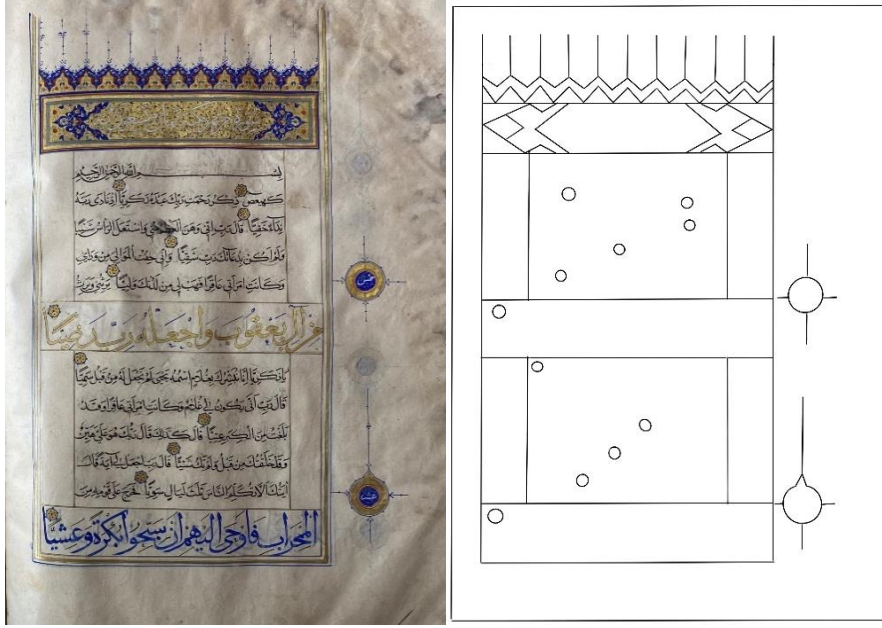 بسم الله الرحمن الرحيم
كهيعص ذكر رحمت ربك عبده زكريا اذ نادى ربه
نداء خفيا قال رب اني وهن العظم مني واشتعل الراس شيبا
ولم اكن بدعائك رب شقيا واني خفت الموالي من ورائي
وكانت امراتي عاقرا فهب لي من لدنك وليا يرثني ويرث
من ال يعقوب واجعله رب رضيا
يا زكريا انا نبشرك بغلام اسمه يحيى لم نجعل له من قبل سميا
قال رب انى يكون لي غلام وكانت امراتي عاقرا وقد
بلغت من الكبر عتيا قال كذلك قال ربك هو علي هين
وقد خلقتك من قبل ولم تك شيئا قال رب اجعل لي اية قال
ايتك الا تكلم الناس ثلث ليال سويا فخرج على قومه من
المحراب فاوحى اليهم ان سبحوا بكرة وعشيا